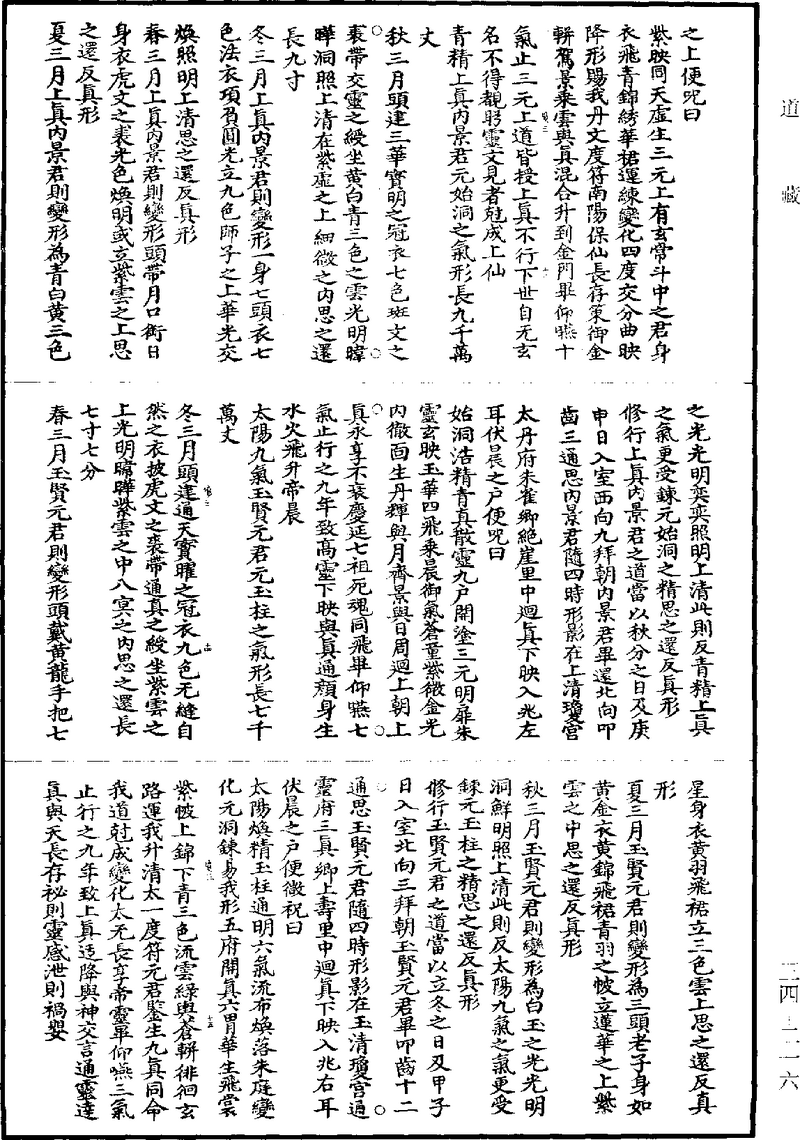 道藏
三四—二六
之上便呪曰
紫映同天虛生三元上有玄常斗中之君身
衣飛青錦綉華裙運練變化四度交分曲映
降形賜我丹文度符南陽保仙長存策御金
軿駕景乘雲與真混合升到金門畢仰嚥十
氣止三元上道皆授上真不行下世自无玄
名不得覩眄靈文見者尅成上仙
青精上真內景君元始洞之氣形長九千萬
丈
秋三月頭建三華寶明之冠衣七色斑文之
裘帶交靈之綬坐黃白青三色之雲光明暐
曄洞照上清在紫虛之上細微之內思之還
長九寸
冬三月上真內景君則變形一身七頭衣七
色法衣項負圓光立九色師子之上華光交
煥照明上清思之還反真形
春三月上真內景君則變形頭帶月口銜日
身衣虎文之裘光色煥明或立紫雲之上思
之還反真形
夏三月上真內景君則變形為青白黃三色
之光光明奕奕照明上清此則反青精上真
之氣更受鍊元始洞之精思之還反真形
修行上真內景君之道當以秋分之日及庚
申日入室西向九拜朝內景君畢還北向叩
齒三通思內景君隨四時形影在上清瓊宮
太丹府朱雀鄉絕崖里中迴真下映入兆左
耳伏晨之戶便呪曰
始洞浩精青真散靈九戶開塗三元明扉朱
靈玄映玉華四飛乘晨御氣蒼童紫微金光
內徹面生丹輝與月齊景與日周迴上朝上
真永享不衰慶延七祖死魂同飛畢仰嚥七
氣止行之九年致高靈下映與真通顏身生
水火飛升帝晨
太陽九氣玉賢元君元玉柱之氣形長七千
萬丈
冬三月頭建通天寶曜之冠衣九色无縫自
然之衣披虎文之裘帶通真之綬坐紫雲之
上光明暐曄紫雲之中八冥之內思之還長
七寸七分
春三月玉賢元君則變形頭戴黃龍手把七
星身衣黃羽飛裙立三色雲上思之還反真
形
夏三月玉賢元君則變形為三頭老子身如
黃金衣黃錦飛裙青羽之帔立蓮華之上紫
雲之中思之還反真形
秋三月玉賢元君則變形為白玉之光光明
洞鮮明照上清此則反太陽九氣之氣更受
鍊元玉柱之精思之還反真形
修行玉賢元君之道當以立冬之日及甲子
日入室北向三拜朝玉賢元君畢叩齒十二
通思玉賢元君隨四時形影在玉清瓊宮通
靈府三真鄉上壽里中迴真下映入兆右耳
伏晨之戶便微祝曰
太陽煥精玉柱通明六氣流布煥落朱庭變
化元洞鍊易我形五府開真六胃華生飛裳
紫帔上錦下青三色流雲綠輿蒼軿徘徊玄
路運我升清太一度符元君鑒生九真同命
我道尅成變化太无長享帝靈畢仰嚥三氣
止行之九年致上真迂降與神交言通靈達
真與天長存祕則靈感泄則禍嬰